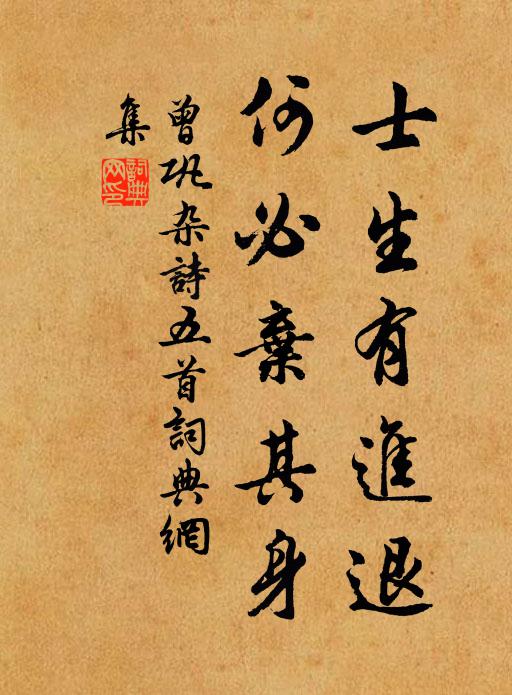 士生有進退
何必棄其身
曾巩杂詩五首詞典網
集
詞典網印